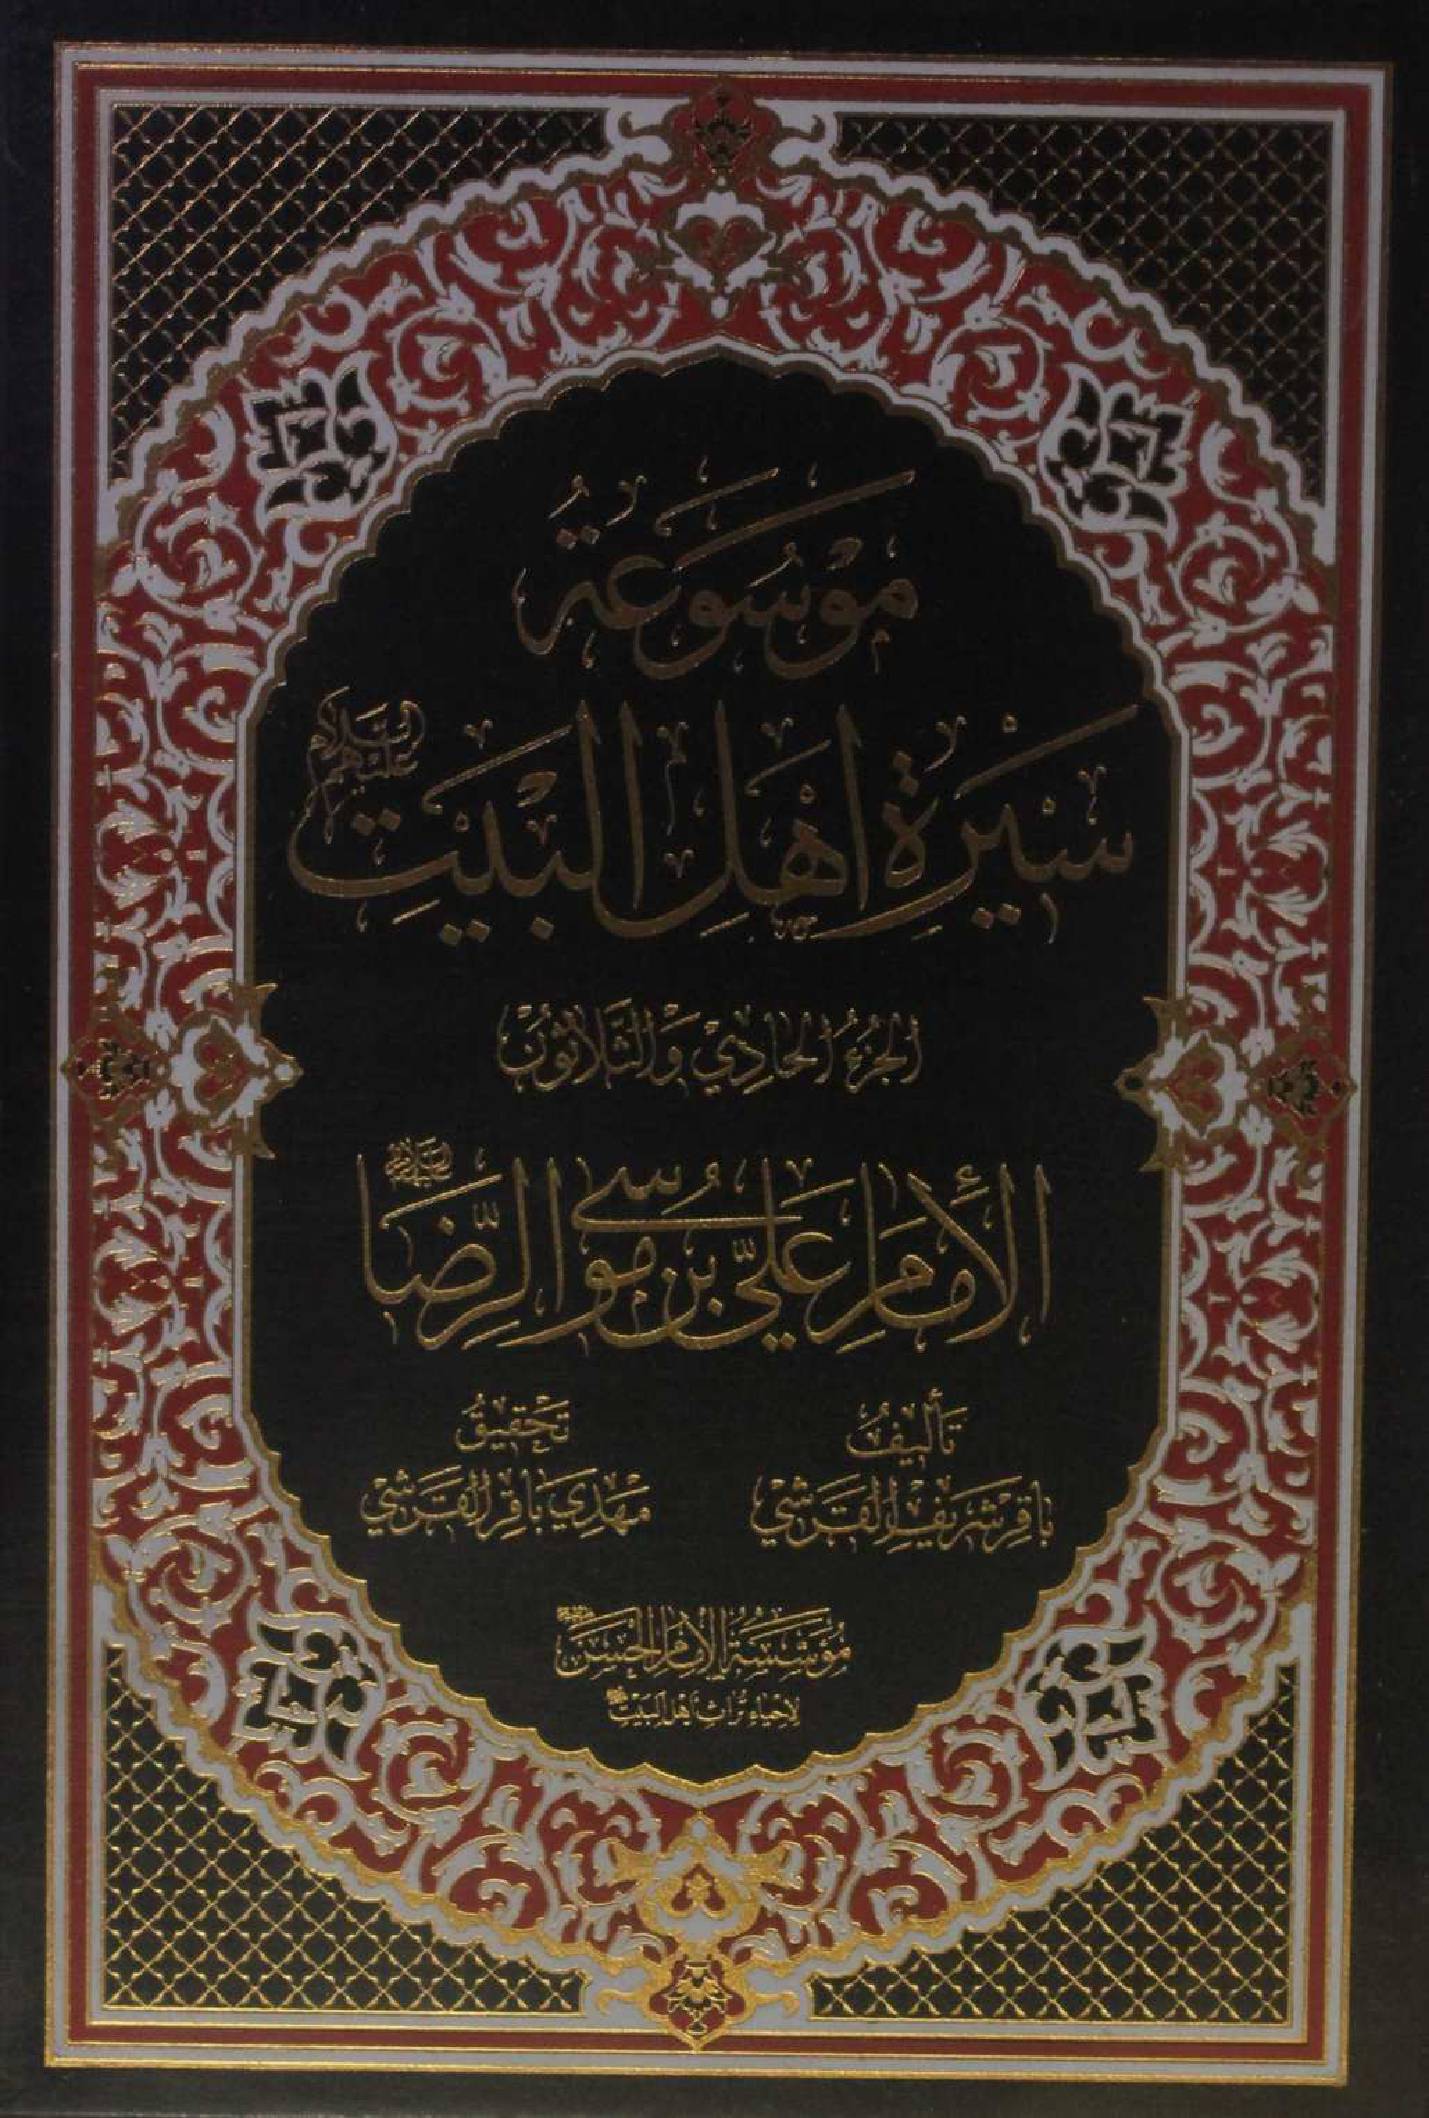 مَوْسُوعَةُ
سِيْرَةِ اَهْلِ الْبَيْتِ عَلَيْهِمُ السَّلَام
الجُزْءُ الحَادِيْ وَالثَّلَاثُوْنْ
الْإِمَامِ عَلِيِّ بْنِ مُوسَى الرِّضَا عليه السلام
تَأليفُ
بَاقِر شَرِيف القَرَشِيْ
تَحْقيقُ
مَهْدِي بَاقِر القَرَشِيْ
مُؤَسَّسَةُ الإمَامِ الحَسَنِ
لِإحْيَاءِ تُرَاثِ أهْلِ البَيْتِ